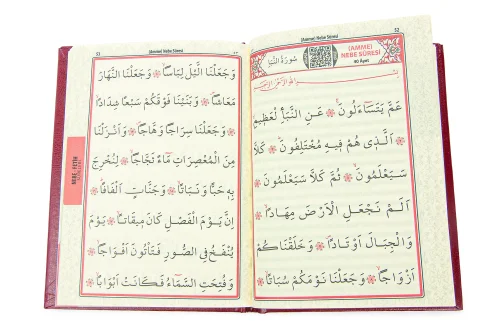 (Amme) Nebe Sûresi
52
سُورَةُ النَّبَأِ
(AMME)
NEBE SÛRESİ
40 Ayet
عَمَّ يَتَسَآءَلُونَۚ ❁ عَنِ النَّبَأِ الْعَظِيمِۙ
اَلَّذِى هُمْ فِيهِ مُخْتَلِفُونَۜ ❁ كَلَّا
سَيَعْلَمُونَۙ ❁ ثُمَّ كَلَّا سَيَعْلَمُونَ ❁
اَلَمْ نَجْعَلِ الْاَرْضَ مِهَادًاۙ ❁
وَالْجِبَالَ اَوْتَادًاۖ ❁ وَخَلَقْنَاكُمْ
اَزْوَاجًاۙ ❁ وَجَعَلْنَا نَوْمَكُمْ سُبَاتًاۙ ❁
53
(Amme) Nebe Sûresi
وَجَعَلْنَا الَّيْلَ لِبَاسًاۙ ❁ وَجَعَلْنَا النَّهَارَ
مَعَاشًاۖ ❁ وَبَنَيْنَا فَوْقَكُمْ سَبْعًا شِدَادًاۙ ❁
وَجَعَلْنَا سِرَاجًا وَهَّاجًاۖ ❁ وَاَنْزَلْنَا
مِنَ الْمُعْصِرَاتِ مَآءً ثَجَّاجًاۙ ❁ لِنُخْرِجَ
بِهِ حَبًّا وَنَبَاتًاۙ ❁ وَجَنَّاتٍ اَلْفَافًاۜ ❁
اِنَّ يَوْمَ الْفَصْلِ كَانَ مِيقَاتًاۙ ❁ يَوْمَ
يُنْفَخُ فِى الصُّورِ فَتَأْتُونَ اَفْوَاجًاۙ ❁
وَفُتِحَتِ السَّمَآءُ فَكَانَتْ اَبْوَابًاۙ ❁
NEBE - FETİH